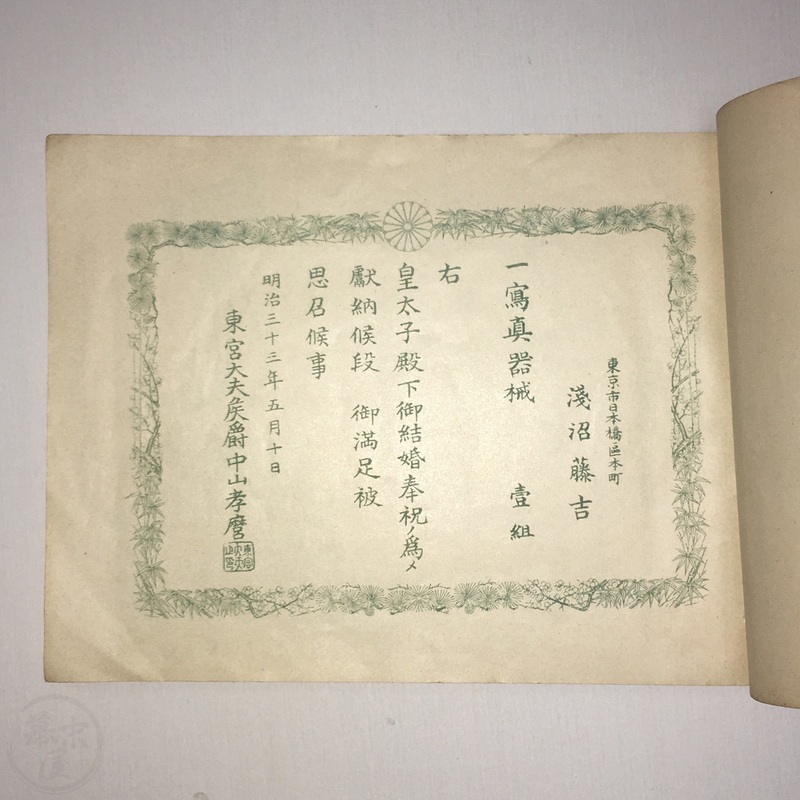 東京市日本橋區本町
淺沼藤吉
一寫真器械 壹組
右
皇太子殿下御結婚奉祝ノ爲メ
獻納候段 御滿足被
思召候事
明治三十三年五月十日
東宮大夫侯爵中山孝麿